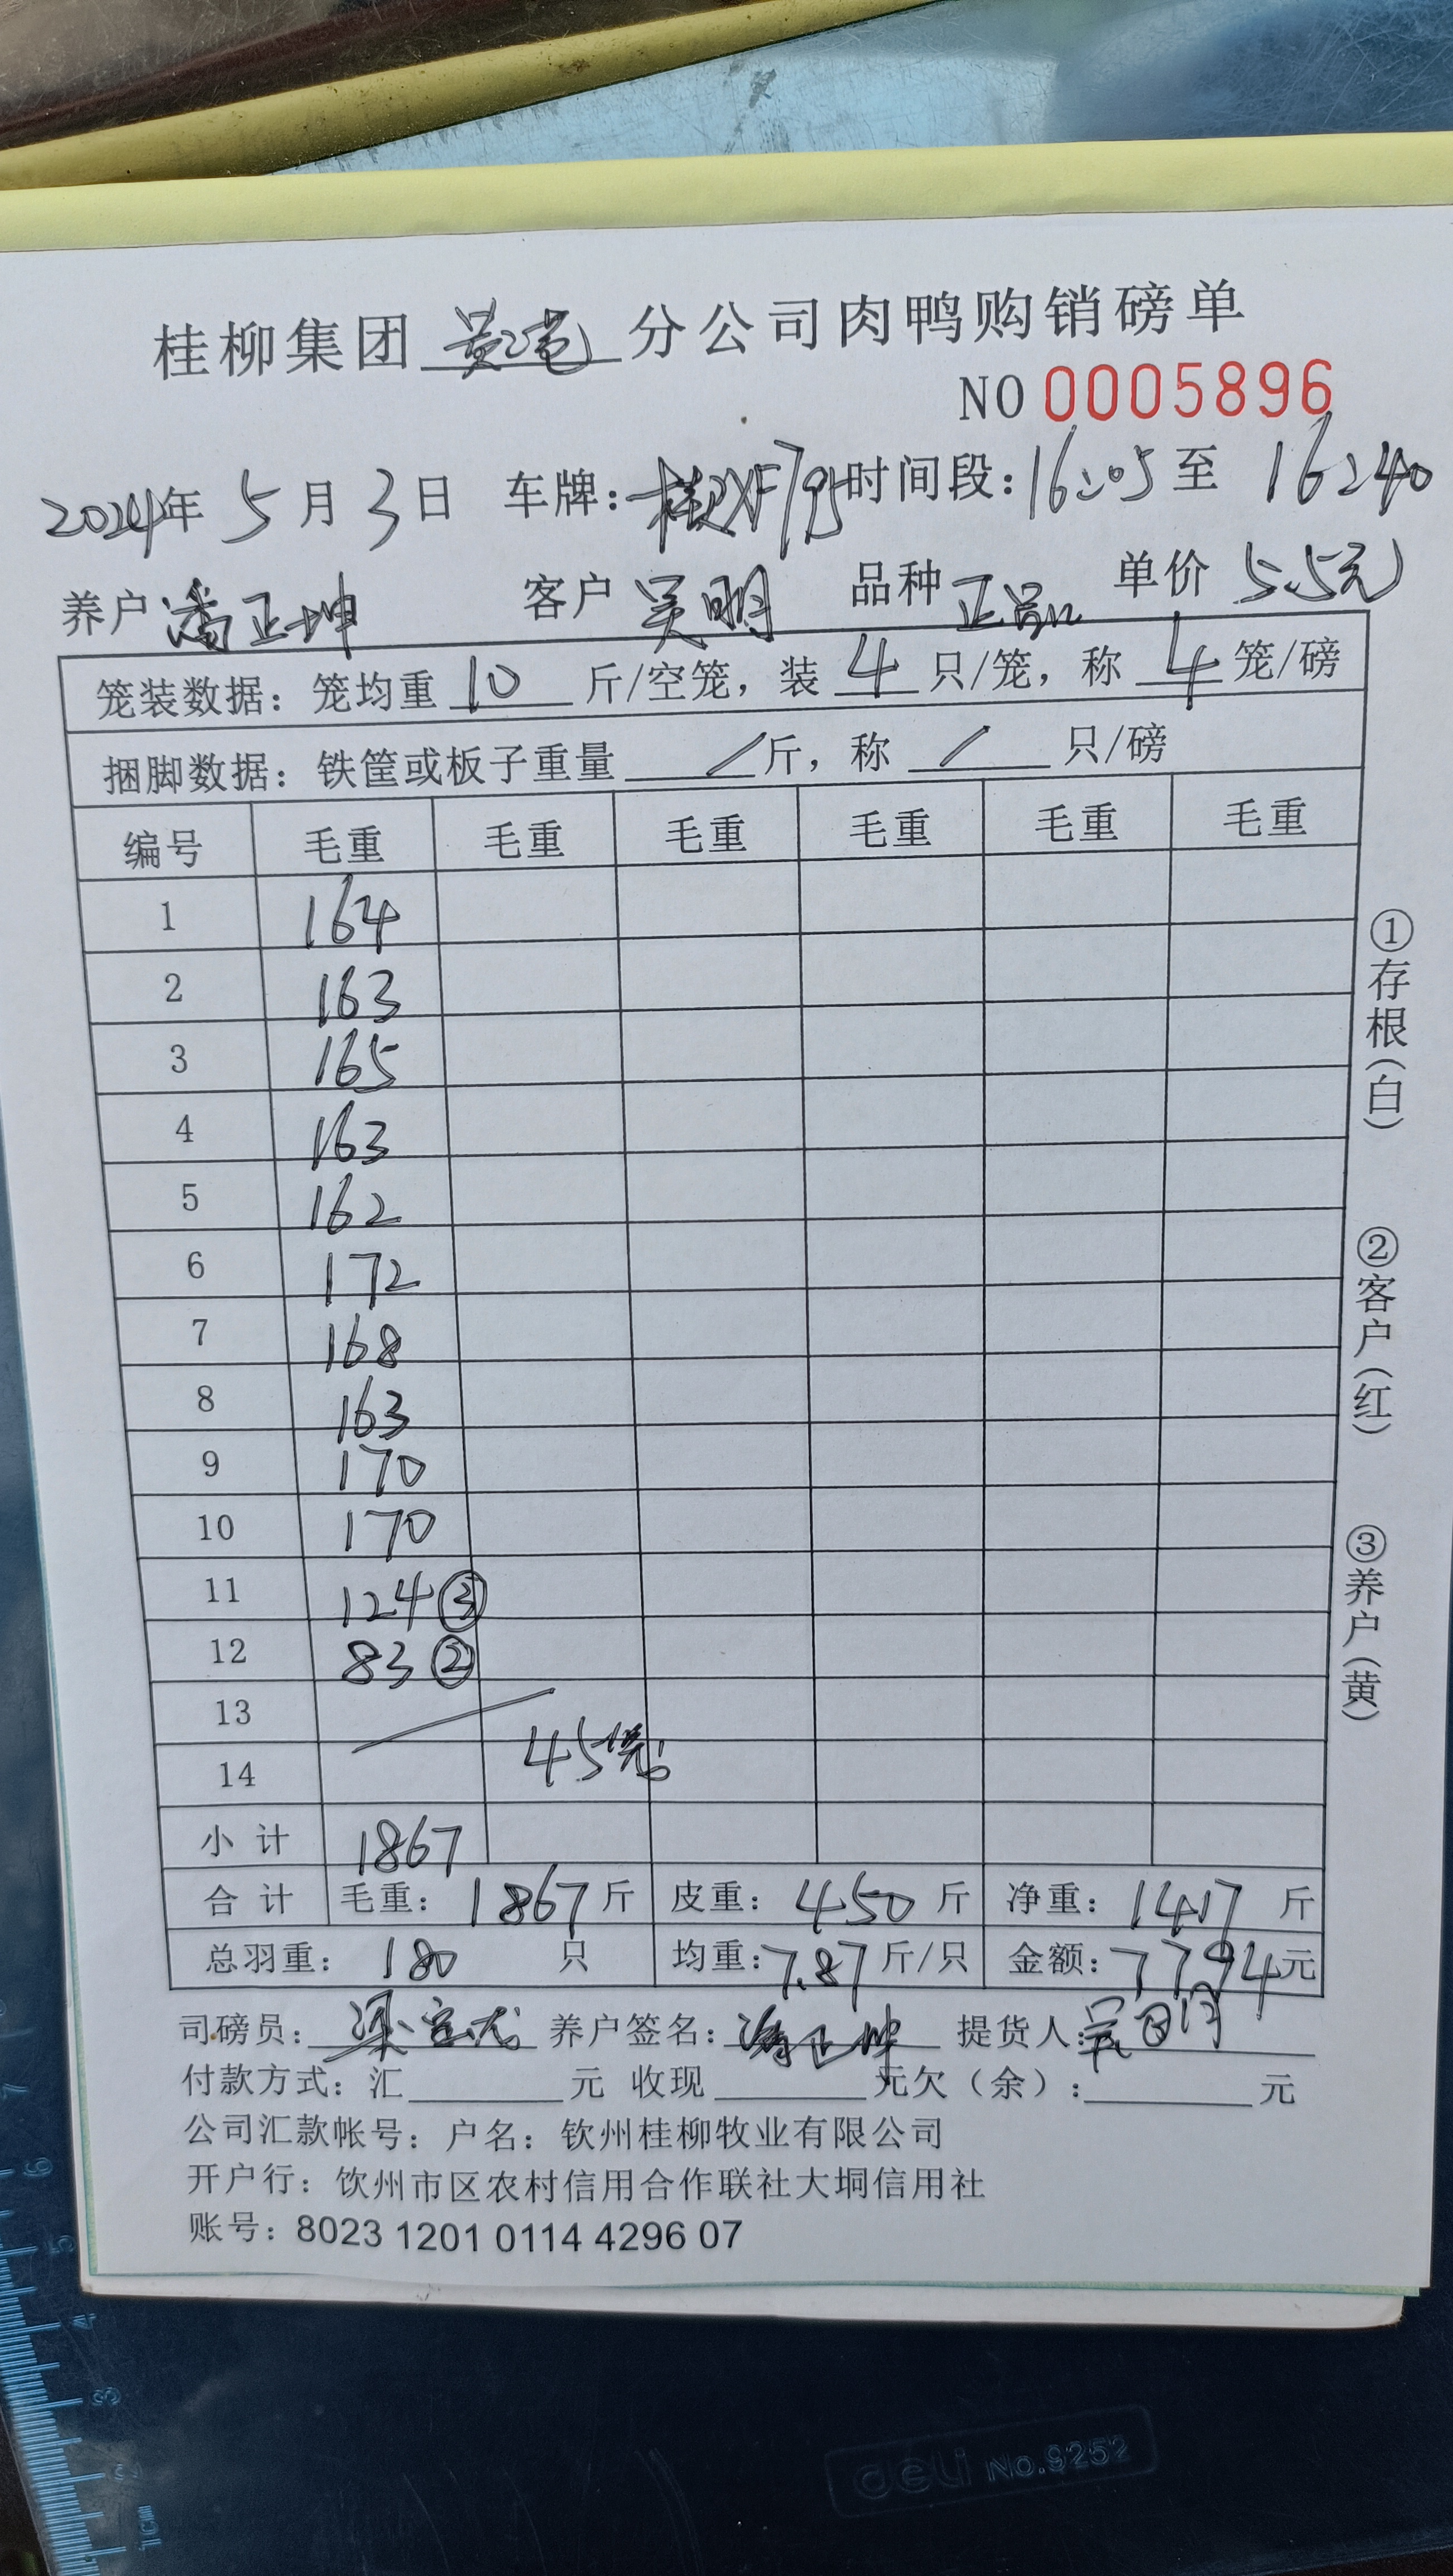 桂柳集团 黄屯 分公司肉鸭购销磅单
NO 0005896
2024年 5 月 3 日 车牌: 时间段: 16:05 至 16:40
养户 潘正坤 客户 吴明 品种 正品 单价 5.5元
笼装数据: 笼均重 10 斤/空笼, 装 4 只/笼, 称 4 笼/磅
捆脚数据: 铁筐或板子重量 / 斤, 称 / 只/磅
编号 毛重 毛重 毛重 毛重 毛重 毛重
1 164
2 163
3 165
4 163
5 162
6 172
7 168
8 163
9 170
10 170
11 124 ③
12 83 ②
13
45笼
14
小计 1867
合计 毛重: 1867 斤 皮重: 450 斤 净重: 1417 斤
总羽重: 180 只 均重: 7.87 斤/只 金额: 7794 元
司磅员: 养户签名: 潘正坤 提货人: 吴明
付款方式: 汇 元 收现 元 欠(余): 元
公司汇款帐号: 户名: 钦州桂柳牧业有限公司
开户行: 饮州市区农村信用合作联社大垌信用社
账号: 8023 1201 0114 4296 07
①存根(白)
②客户(红)
③养户(黄)
deli No.9252